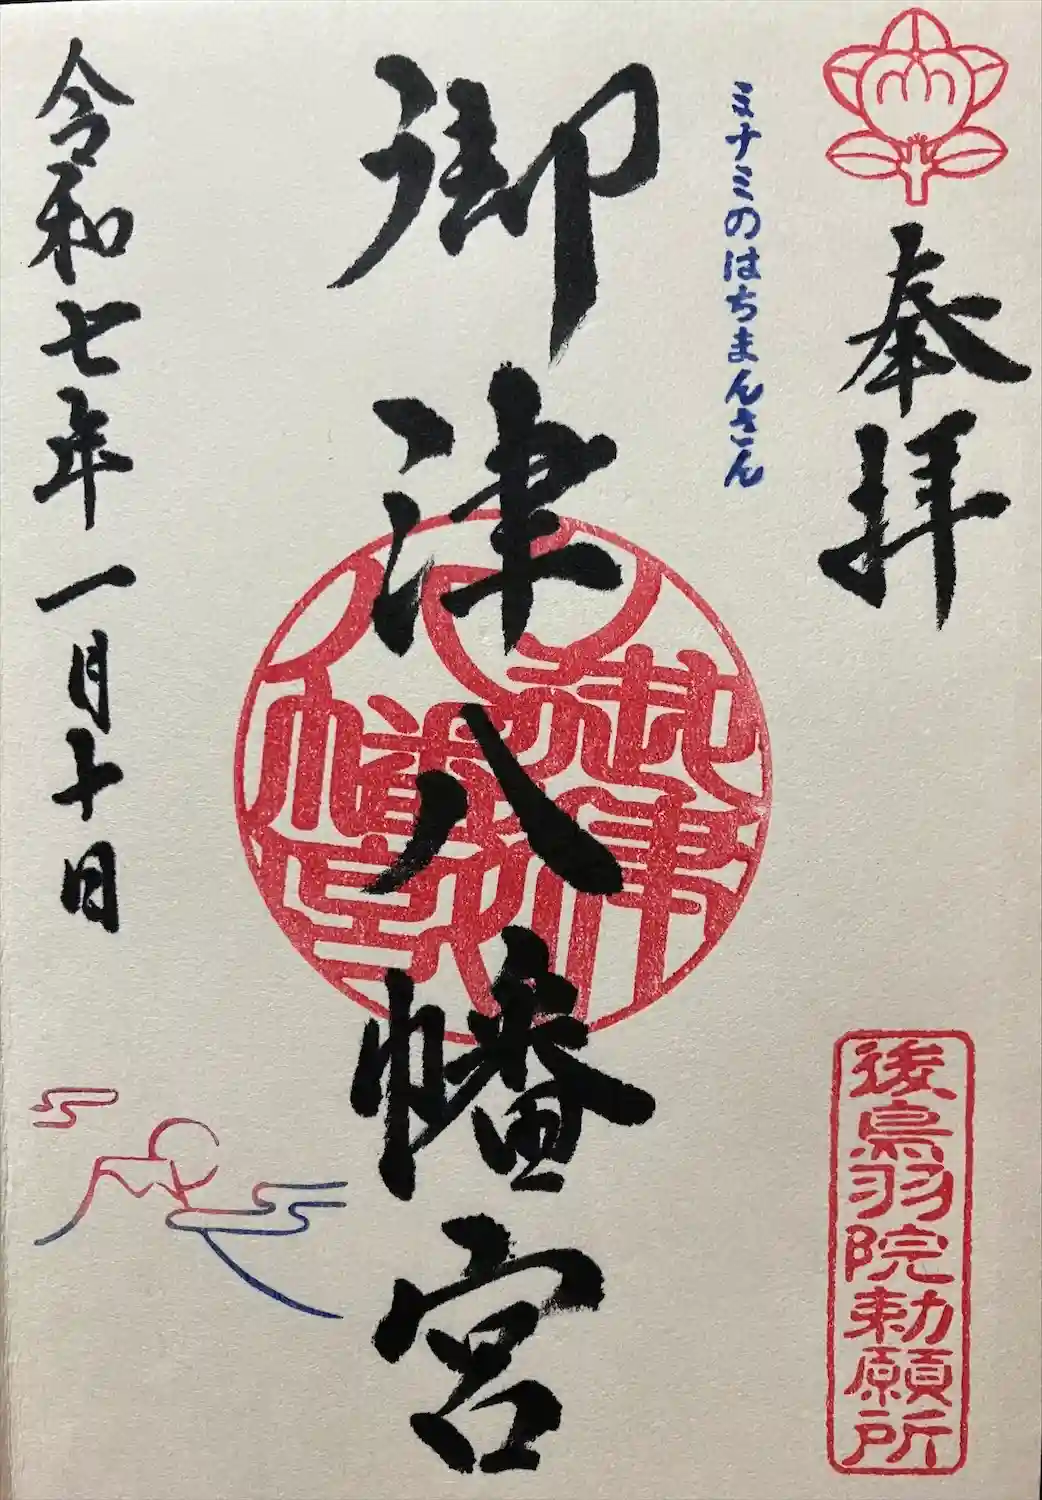 奉拝
ミナミのはちまんさん
御津八幡宮
令和七年一月十日
後鳥羽院勅願所